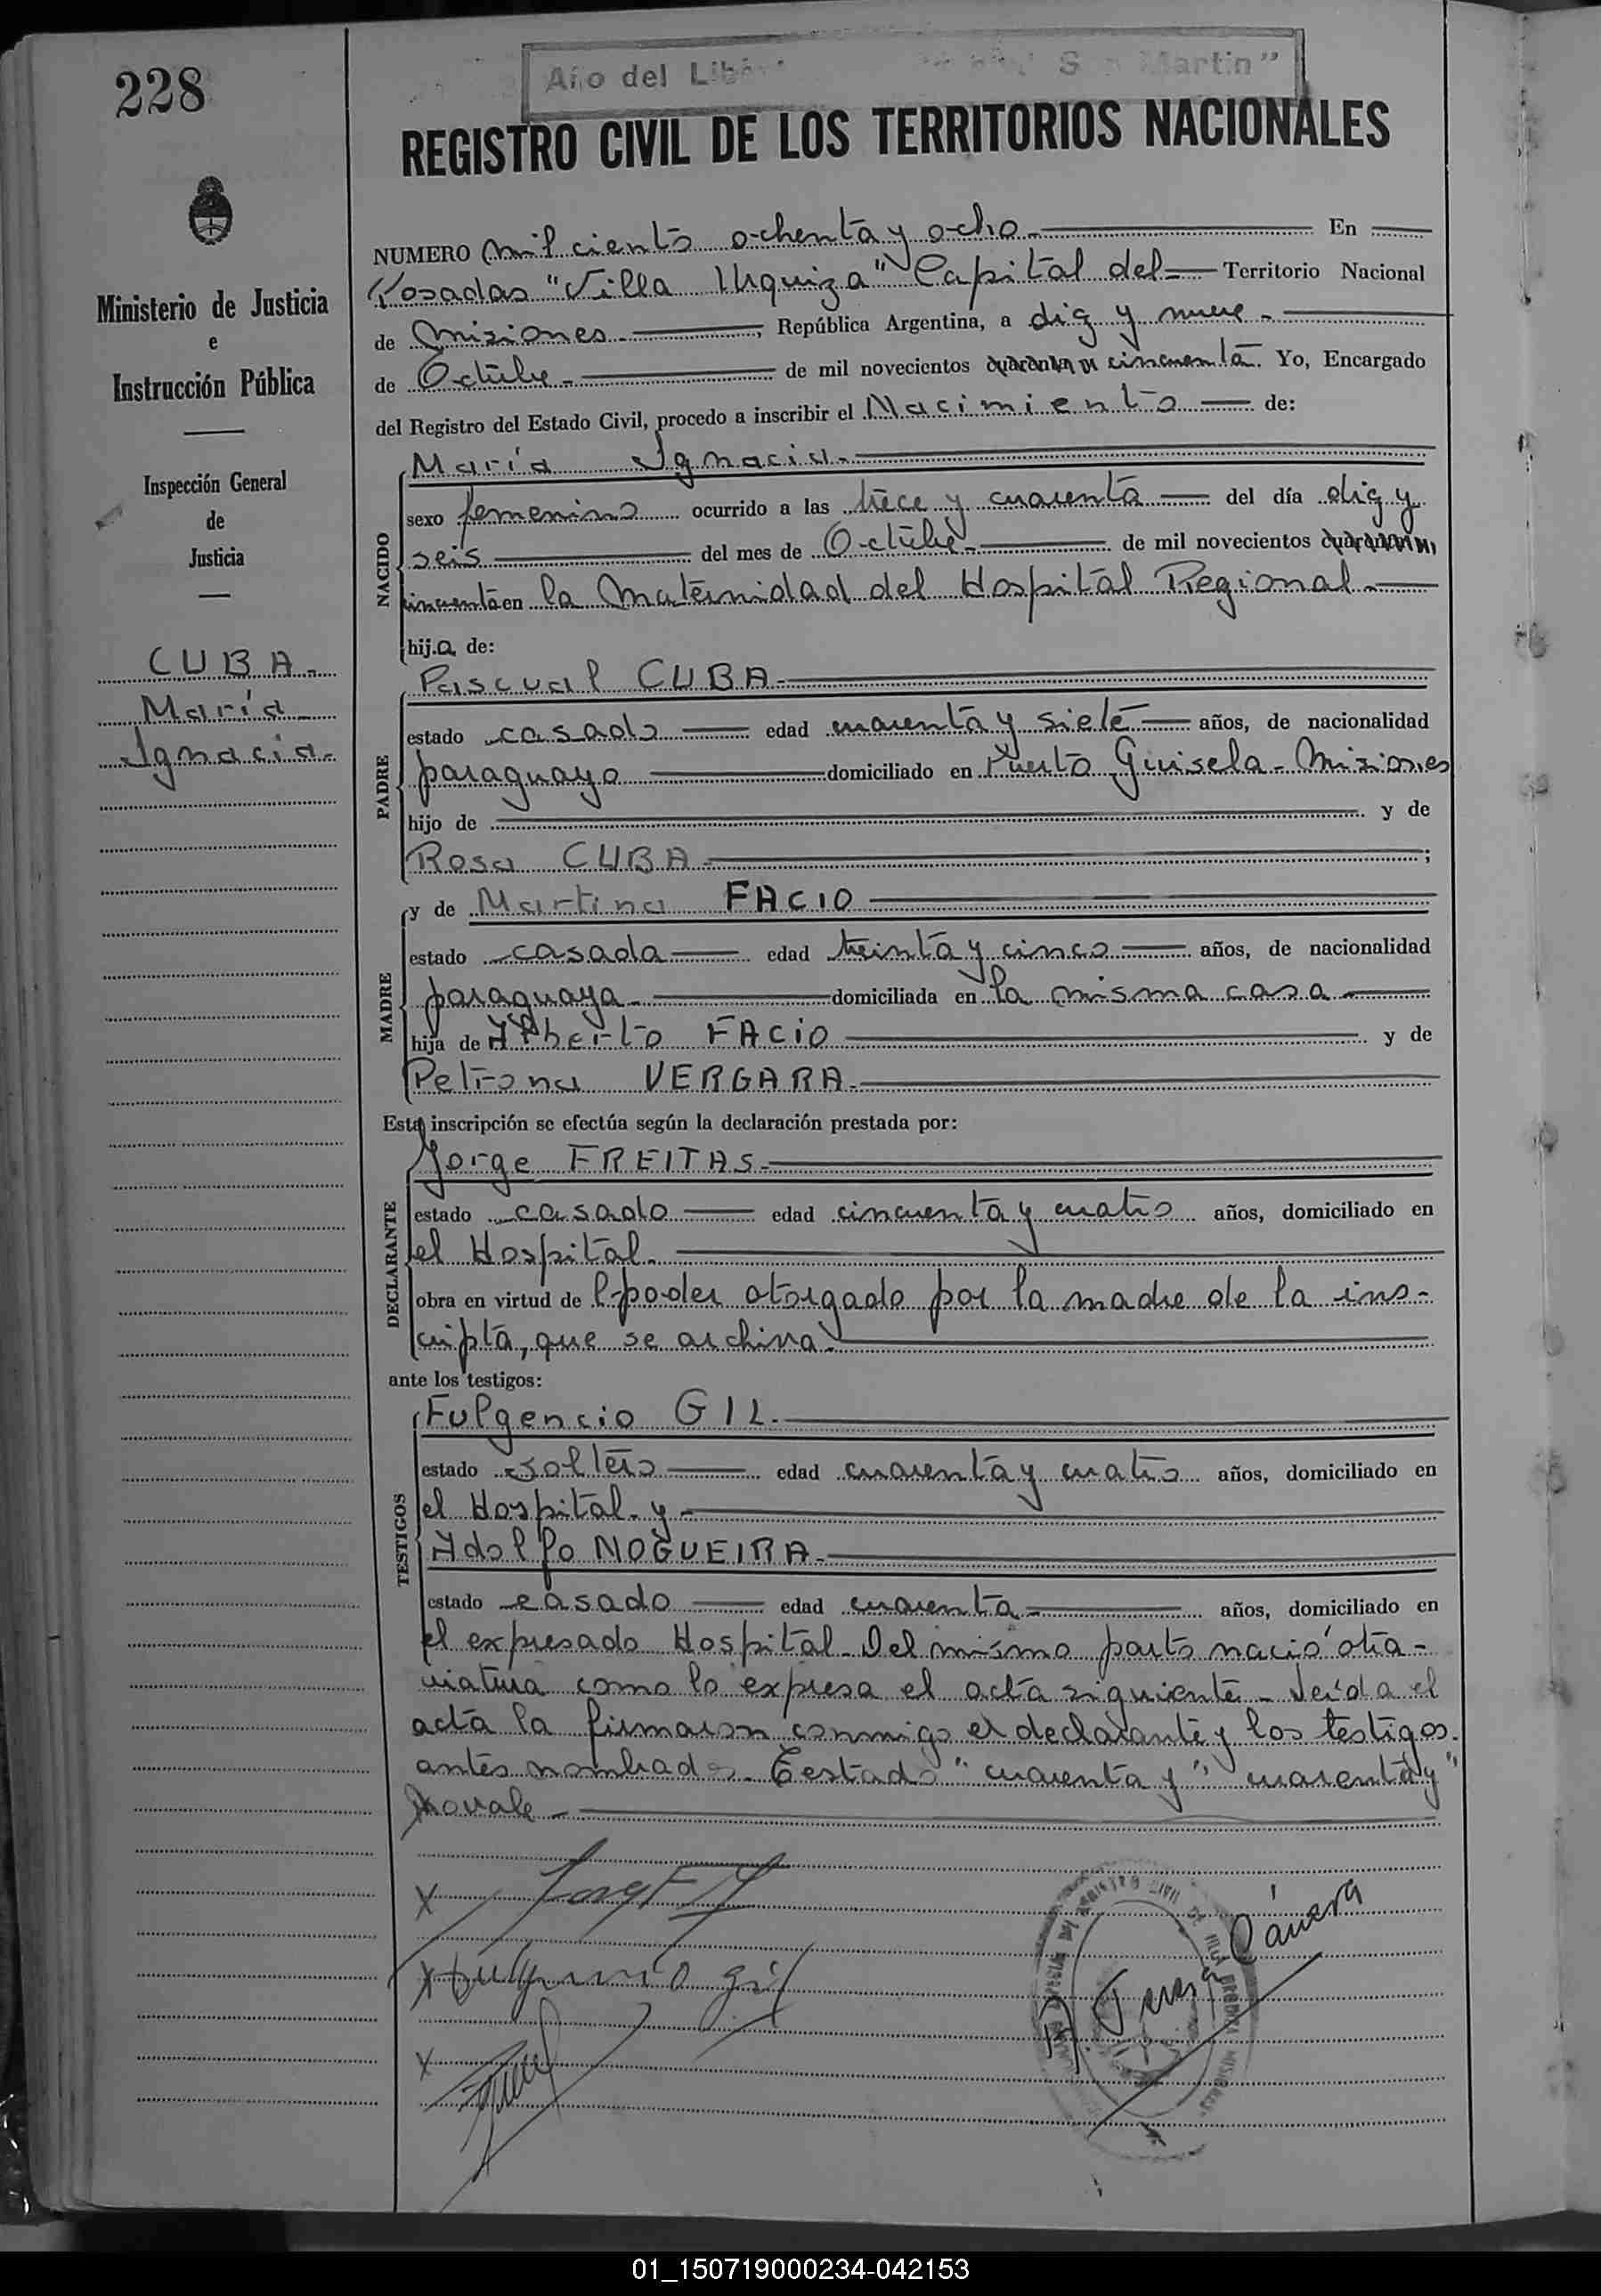 228
Año del Lib San Martin"
REGISTRO CIVIL DE LOS TERRITORIOS NACIONALES
Ministerio de Justicia
e
Instrucción Pública
Inspección General
de
Justicia
CUBA.
María
Ignacia.
NUMERO mil ciento ochenta y ocho En
Posadas "Villa Urquiza" Capital del Territorio Nacional
de Misiones, República Argentina, a diez y nueve
de Octubre de mil novecientos cuarenta y cincuenta. Yo, Encargado
del Registro del Estado Civil, procedo a inscribir el Nacimiento de:
NACIDO
María Ignacia.
sexo femenino ocurrido a las trece y cuarenta del día diez y
seis del mes de Octubre de mil novecientos cuarenta y
cincuenta en la Maternidad del Hospital Regional.
hija de:
PADRE
Pascual CUBA
estado casado edad cuarenta y siete años, de nacionalidad
paraguayo domiciliado en Puerto Guisela - Misiones
hijo de y de
Rosa CUBA ;
MADRE
y de Martina FACIO
estado casada edad treinta y cinco años, de nacionalidad
paraguaya domiciliada en la misma casa
hija de Alberto FACIO y de
Petrona VERGARA
Esta inscripción se efectúa según la declaración prestada por:
DECLARANTE
Jorge FREITAS
estado casado edad cincuenta y cuatro años, domiciliado en
el Hospital.
obra en virtud de l poder otorgado por la madre de la ins-
cripta, que se archiva.
ante los testigos:
TESTIGOS
Fulgencio GIL.
estado soltero edad cuarenta y cuatro años, domiciliado en
el Hospital. y
Adolfo NOGUEIRA.
estado casado edad cuarenta años, domiciliado en
el expresado Hospital. Del mismo parto nació otra
criatura como lo expresa el acta siguiente. Leída el
acta la firmaron conmigo el declarante y los testigos
antes nombrados. Testado "cuarenta y" "cuarenta y"
no vale.
X
X Fulgencio Gil
X
01_150719000234-042153